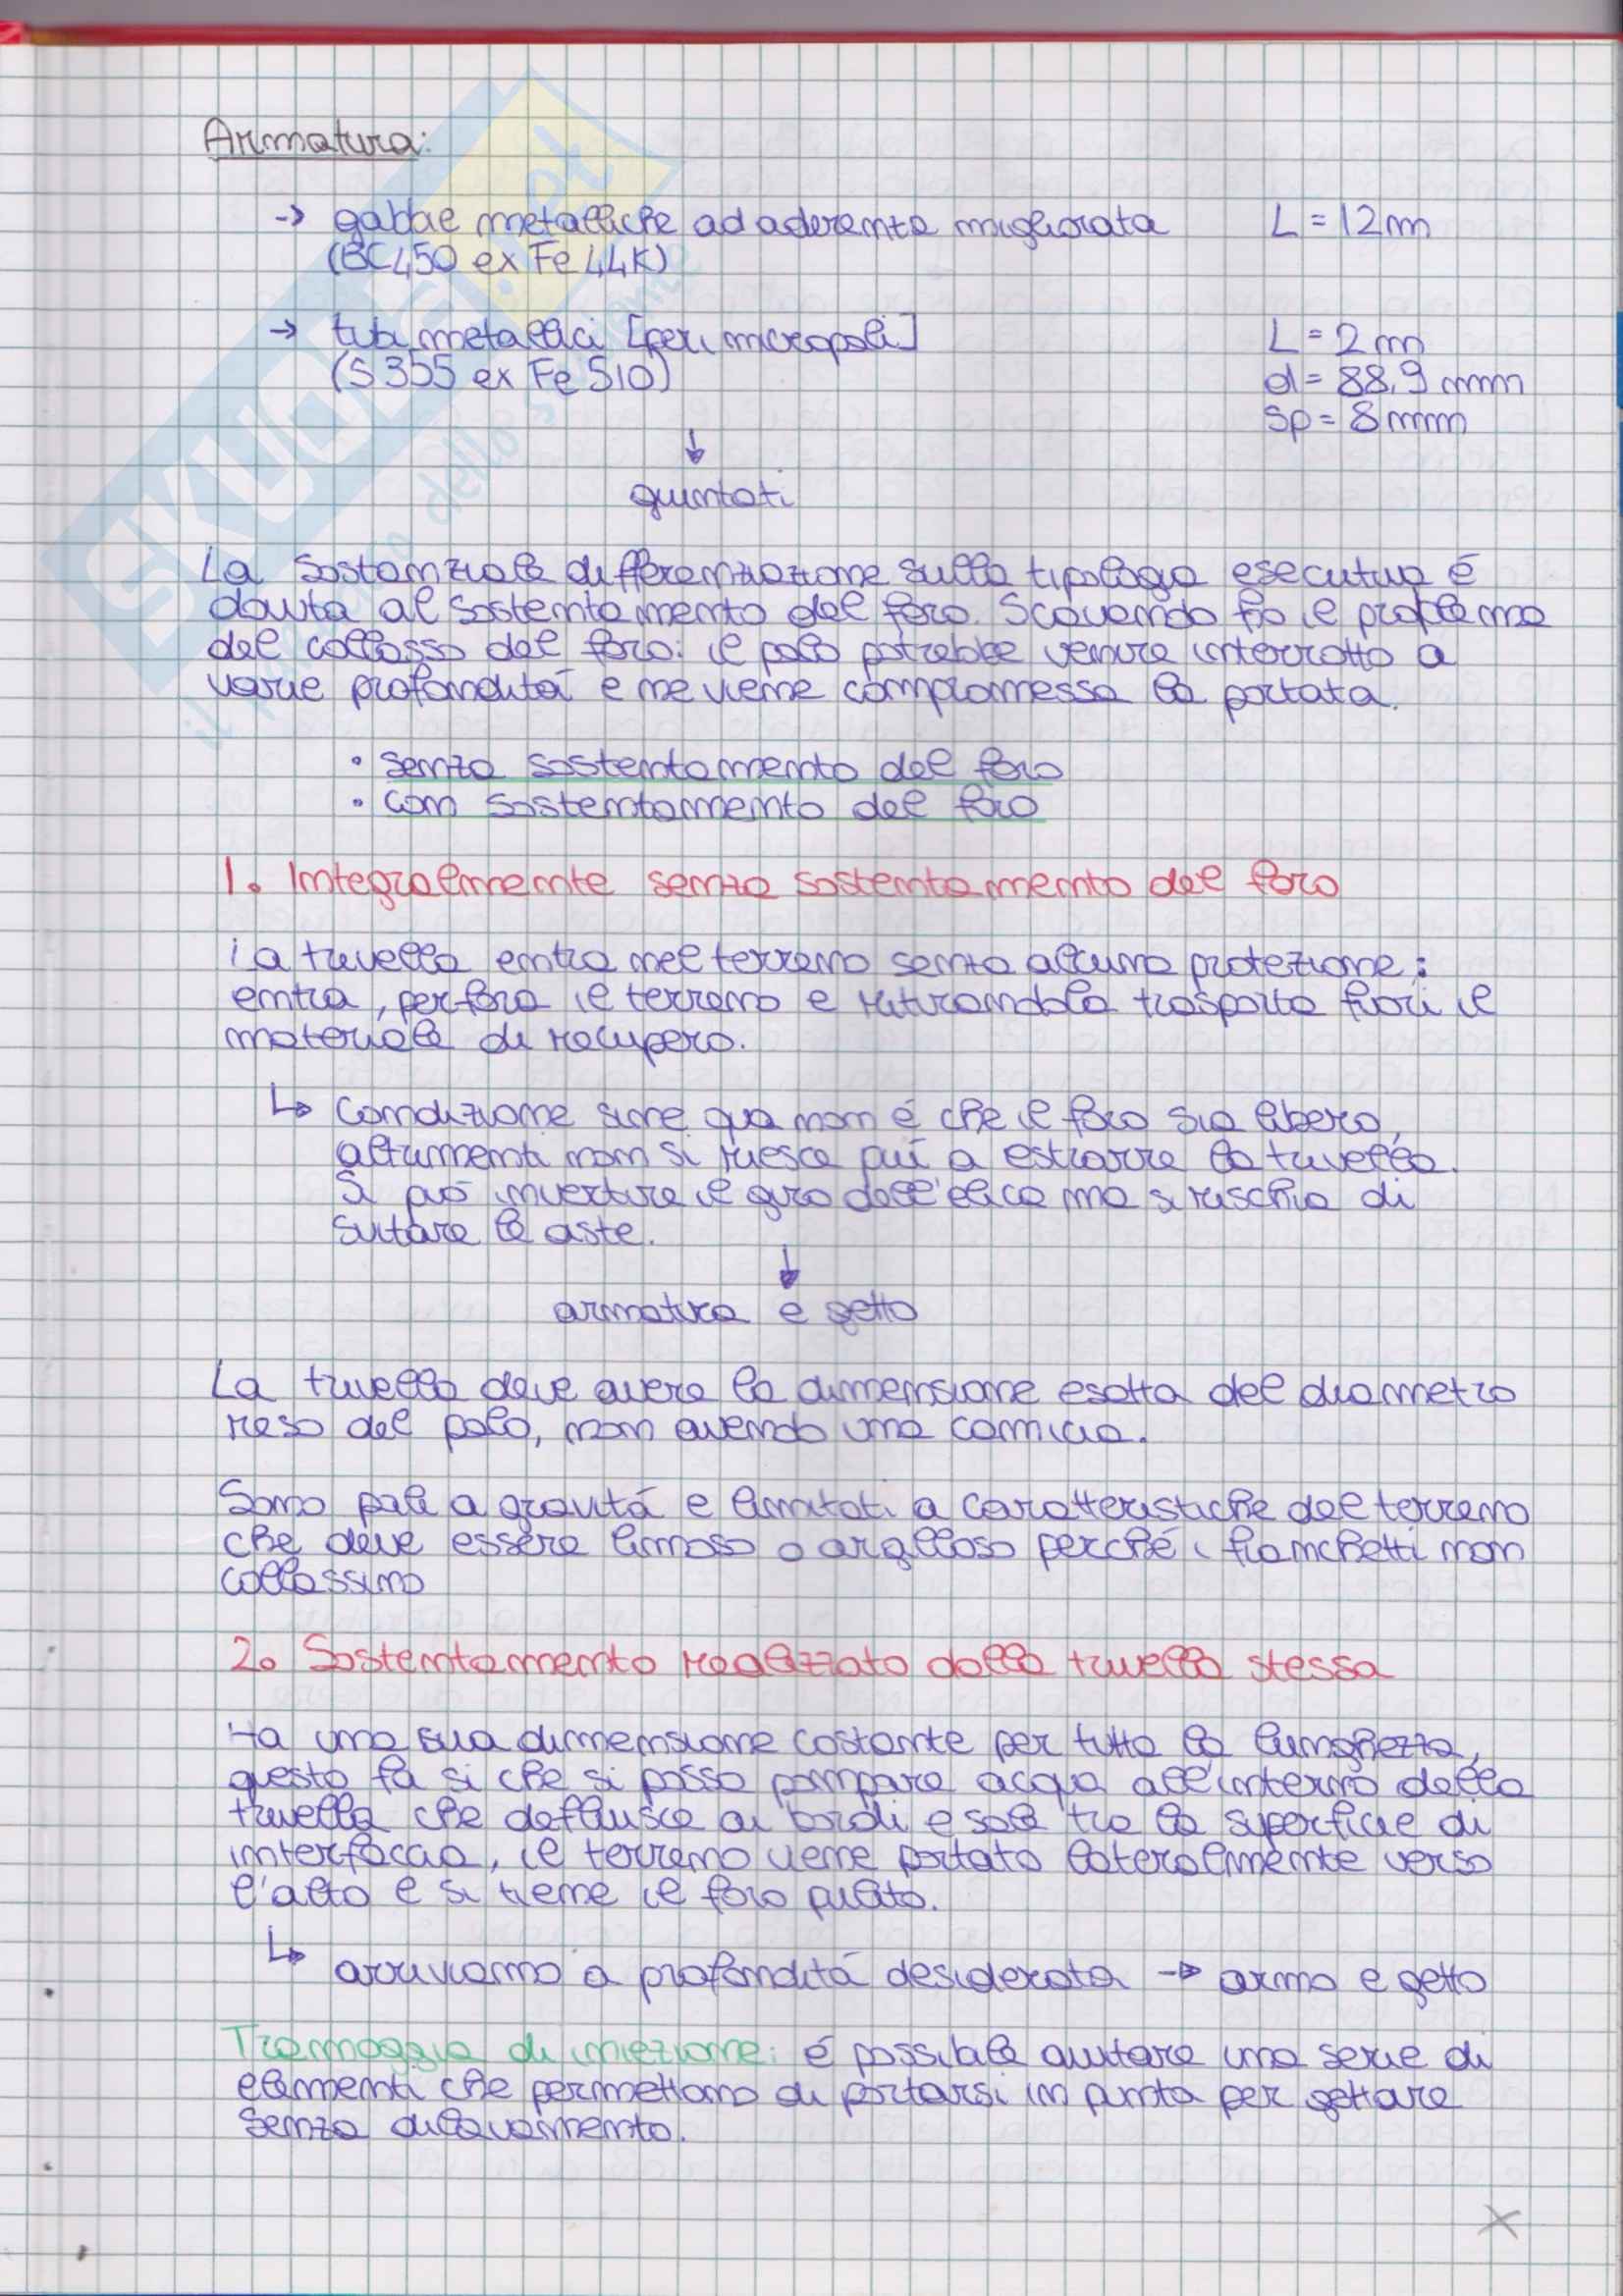 Armatura:
-> gabbie metalliche ad aderenza migliorata L = 12 m
(BC450 ex Fe44K)
-> tubi metallici [per i micropali] L = 2 m
(S355 ex Fe510) d = 88,9 mm
sp = 8 mm
↓
giuntati
La sostanziale differenziazione sulla tipologia esecutiva é
dovuta al sostentamento del foro. Scavando ho il problema
del collasso del foro: il palo potrebbe venire interrotto a
varie profonditá e ne viene compromessa la portata.
• senza sostentamento del foro
• con sostentamento del foro
1. Integralmente senza sostentamento del foro
La trivella entra nel terreno senza alcuna protezione:
entra, perfora il terreno e ritirandola trasporta fuori il
materiale di recupero.
↳ Condizione sine qua non é che il foro sia libero,
altrimenti non si riesce piú a estrarre la trivella.
Si puó invertire il giro dell'elica ma si rischia di
svitare le aste.
↓
armatura e getto
La trivella deve avere la dimensione esatta del diametro
reso del palo, non avendo una camicia.
Sono pali a gravitá e limitati a caratteristiche del terreno
che deve essere limoso o argilloso perché i fianchetti non
collassino
2. Sostentamento realizzato dalla trivella stessa
Ha una sua dimensione costante per tutta la lunghezza,
questo fa si che si possa pompare acqua all'interno della
trivella che defluisce ai bordi e sale tra la superficie di
interfaccia, il terreno viene portato lateralmente verso
l'alto e si tiene il foro pulito.
↳ arriviamo a profonditá desiderata -> armo e getto
Tramoggia di iniezione: é possibile avvitare una serie di
elementi che permettono di portarsi in punta per gettare
senza dilavamento.
SKUOLA.net
il paradiso dello studente